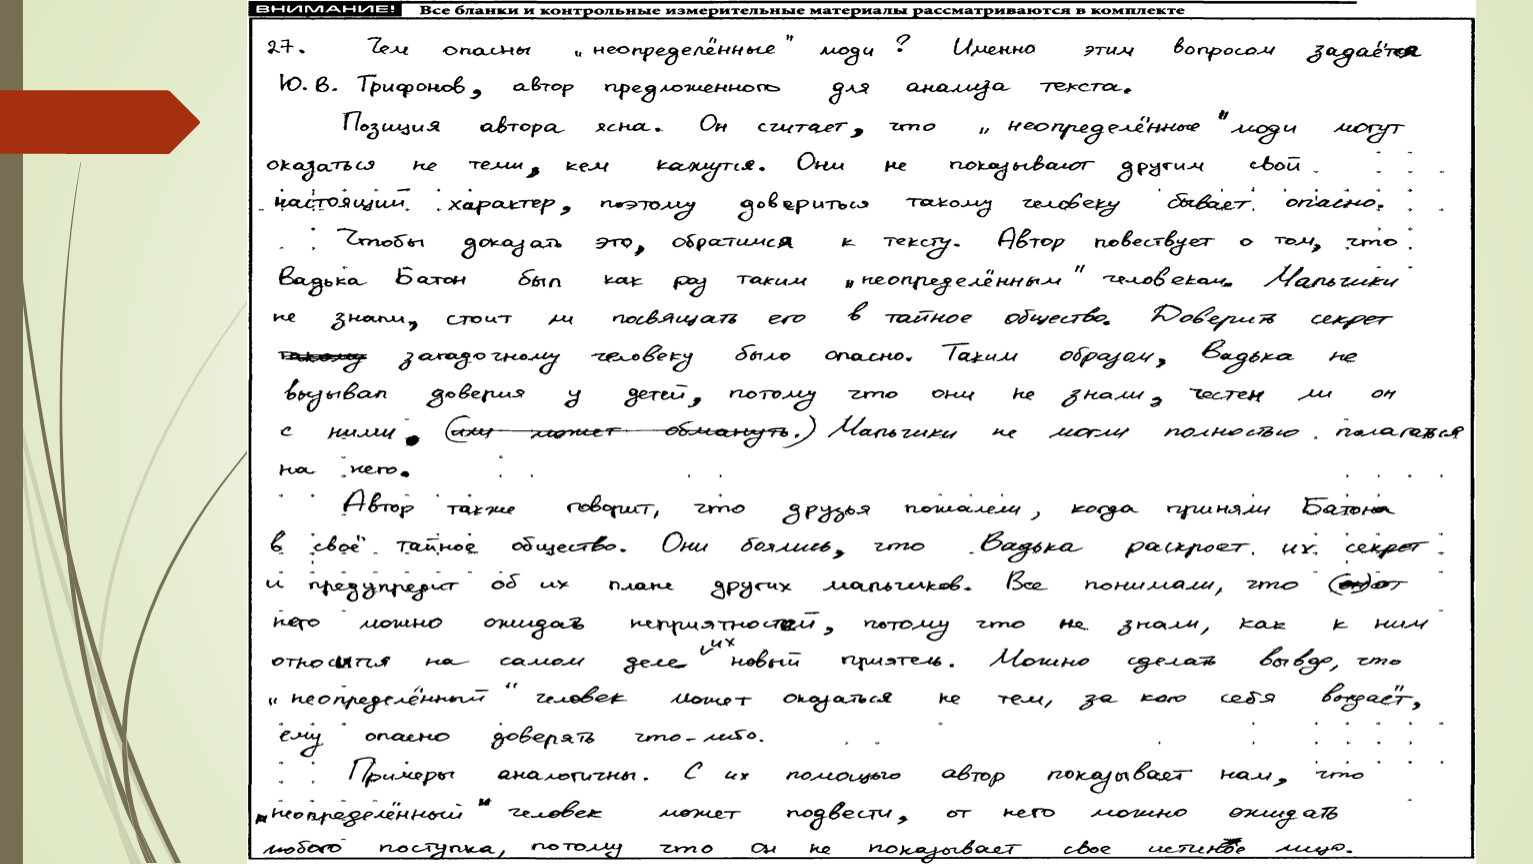 ВНИМАНИЕ! Все бланки и контрольные измерительные материалы рассматриваются в комплекте
27. Чем опасны „неопределённые" люди? Именно этим вопросом задаётся
Ю.В. Трифонов, автор предложенного для анализа текста.
Позиция автора ясна. Он считает, что „неопределённые" люди могут
оказаться не теми, кем кажутся. Они не показывают другим свой
настоящий характер, поэтому довериться такому человеку бывает опасно.
Чтобы доказать это, обратимся к тексту. Автор повествует о том, что
Вадька Батон был как раз таким „неопределённым" человеком. Мальчики
не знали, стоит ли посвящать его в тайное общество. Доверить секрет
такому загадочному человеку было опасно. Таким образом, Вадька не
вызывал доверия у детей, потому что они не знали, честен ли он
с ними. (или может обмануть.) Мальчики не могли полностью полагаться
на него.
Автор также говорит, что друзья пожалели, когда приняли Батона
в своё тайное общество. Они боялись, что Вадька раскроет их секрет
и предупредит об их плане других мальчиков. Все понимали, что (он) от
него можно ожидать неприятностей, потому что не знали, как к ним
относится на самом деле их новый приятель. Можно сделать вывод, что
„неопределённый" человек может оказаться не тем, за кого себя выдаёт,
ему опасно доверять что-либо.
Примеры аналогичны. С их помощью автор показывает нам, что
„неопределённый" человек может подвести, от него можно ожидать
любого поступка, потому что он не показывает свое истиное лицо.